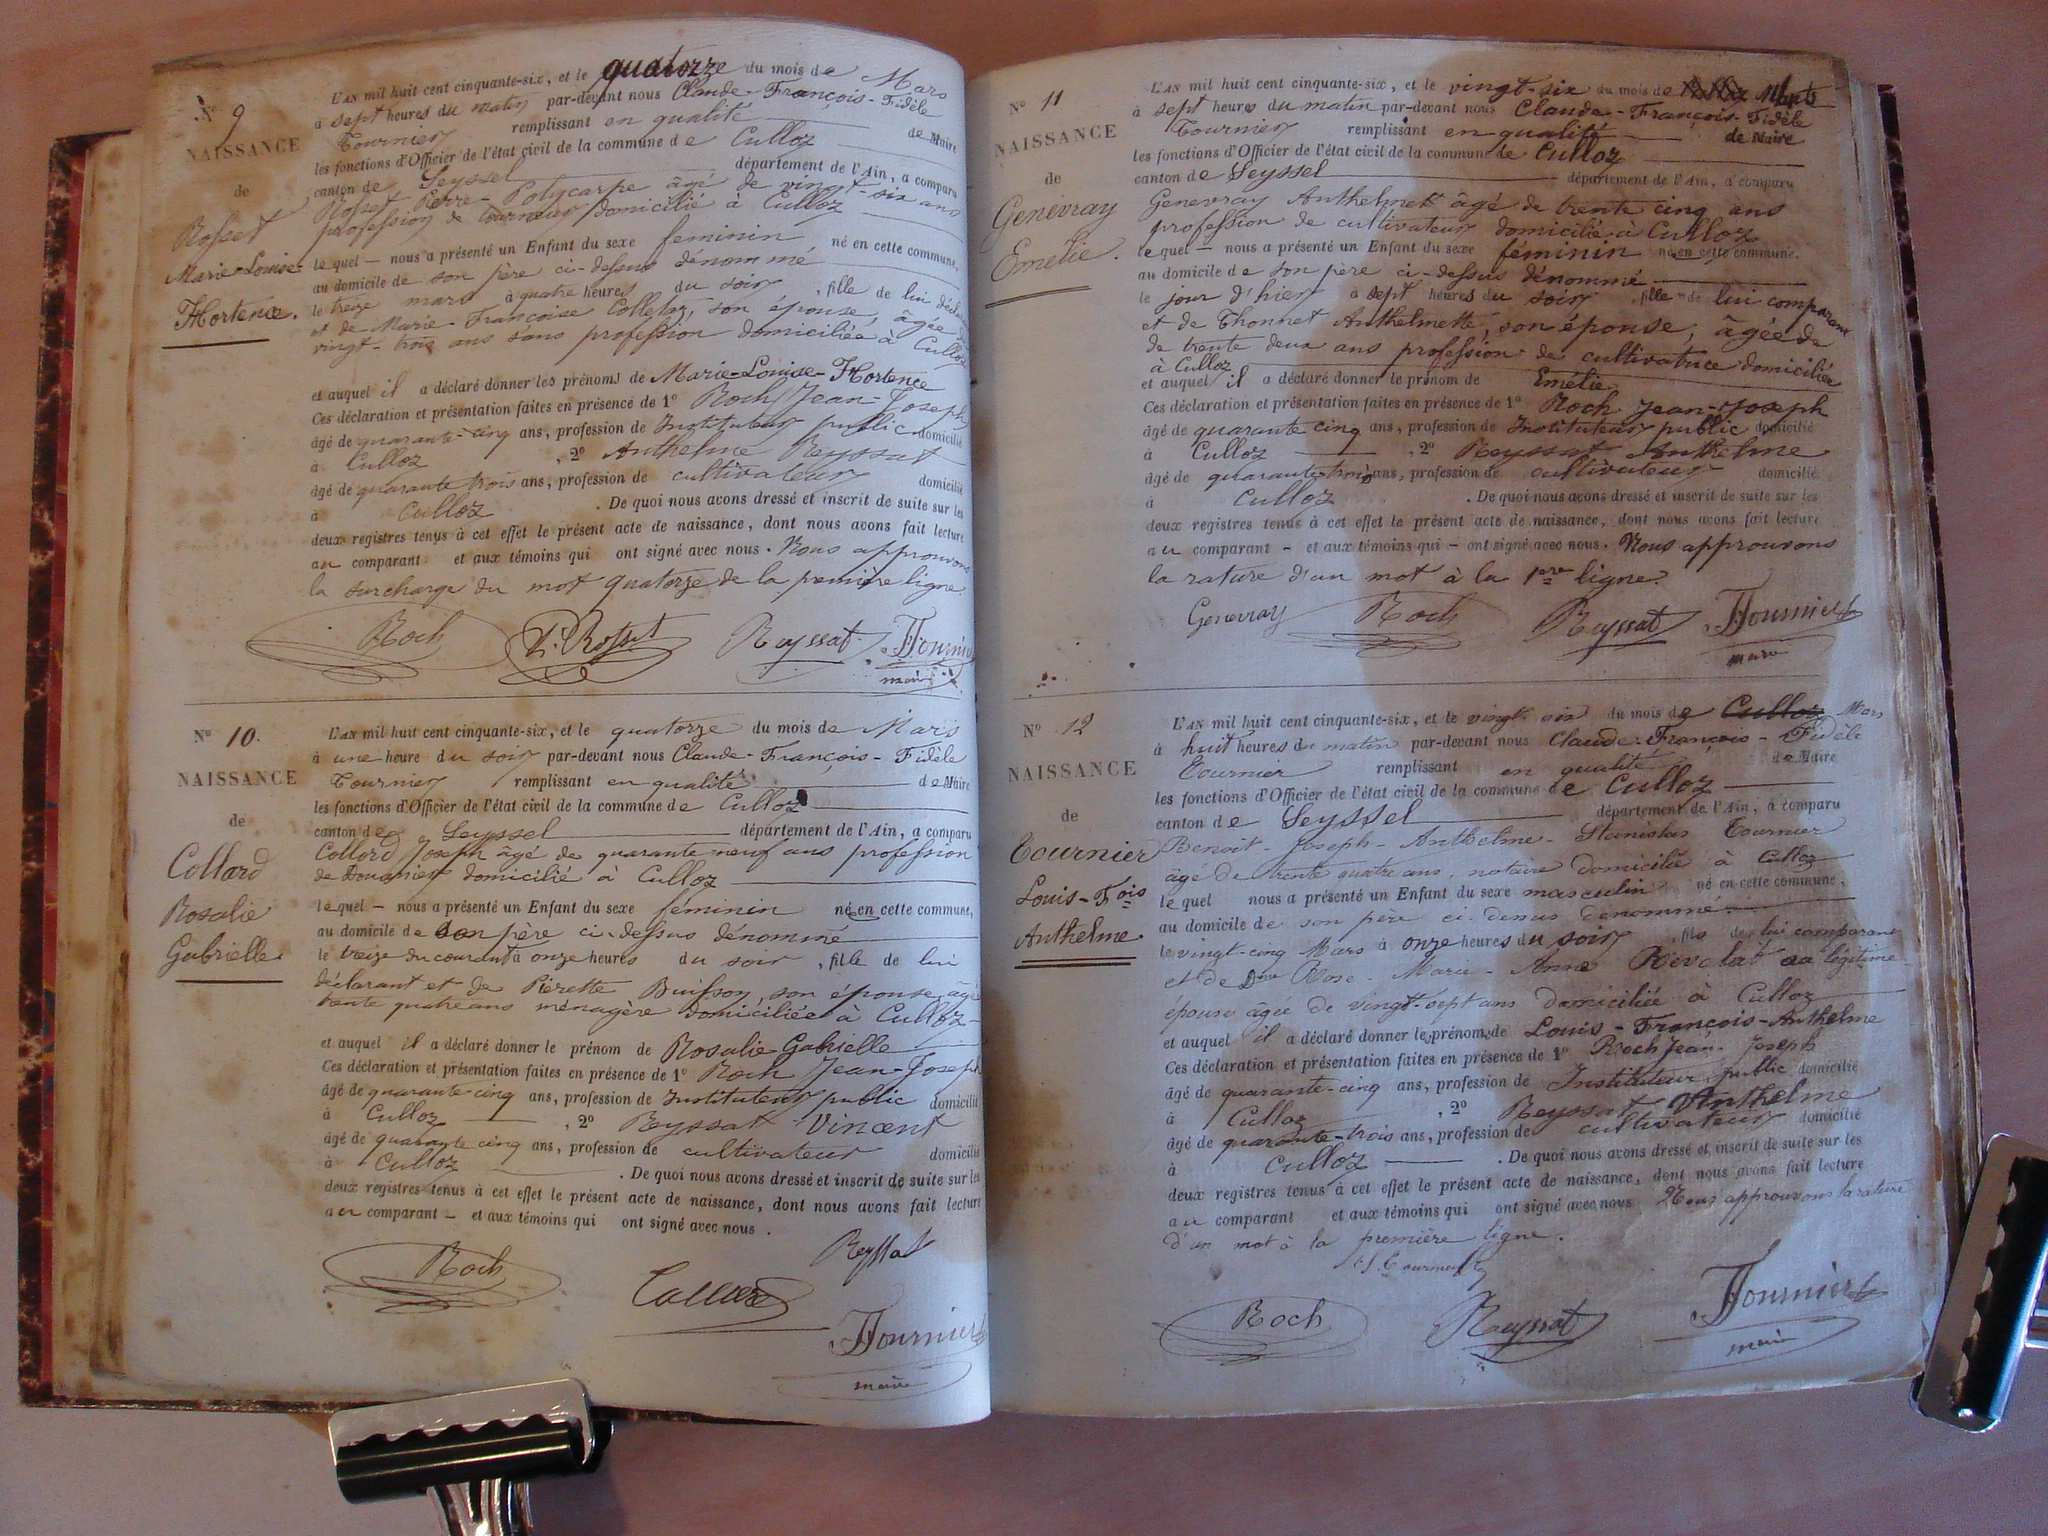 N° 9
NAISSANCE
de
Rosset
Marie-Louise-
Hortence.
L'AN mil huit cent cinquante-six, et le quatorze du mois de Mars
à sept heures du matin par-devant nous Claude-François-Fidèle
Tournier remplissant en qualité de Maire
les fonctions d'Officier de l'état civil de la commune de Culloz
canton de Seyssel département de l'Ain, a comparu
Rosset Pierre-Polycarpe âgé de vingt-six ans
profession de tourneur domicilié à Culloz
lequel — nous a présenté un Enfant du sexe féminin né en cette commune,
au domicile de son père ci-dessus dénommé
le treize mars à quatre heures du soir, fille de lui
et de Marie-Françoise Colletaz, son épouse, âgée de
vingt-trois ans sans profession domiciliée à Culloz
et auquel il a déclaré donner les prénoms de Marie-Louise-Hortence
Ces déclaration et présentation faites en présence de 1° Roch Jean-Joseph
âgé de quarante-cinq ans, profession de Instituteur public domicilié
à Culloz, 2° Anthelme Reyssat
âgé de quarante trois ans, profession de cultivateur domicilié
à Culloz. De quoi nous avons dressé et inscrit de suite sur les
deux registres tenus à cet effet le présent acte de naissance, dont nous avons fait lecture
au comparant et aux témoins qui ont signé avec nous. Nous approuvons
la surcharge du mot quatorze de la première ligne.
Roch P. Rosset Reyssat Tournier
maire
N° 10.
NAISSANCE
de
Collard
Rosalie
Gabrielle.
L'AN mil huit cent cinquante-six, et le quatorze du mois de Mars
à une heure du soir par-devant nous Claude-François-Fidèle
Tournier remplissant en qualité de Maire
les fonctions d'Officier de l'état civil de la commune de Culloz
canton de Seyssel département de l'Ain, a comparu
Collard Joseph âgé de quarante neuf ans profession
de Douanier domicilié à Culloz
lequel — nous a présenté un Enfant du sexe féminin né en cette commune,
au domicile de son père ci-dessus dénommé
le treize du courant à onze heures du soir, fille de lui
déclarant et de Pierette Buisson, son épouse âgée
trente quatre ans ménagère domiciliée à Culloz
et auquel il a déclaré donner le prénom de Rosalie Gabrielle
Ces déclaration et présentation faites en présence de 1° Roch Jean-Joseph
âgé de quarante cinq ans, profession de Instituteur public domicilié
à Culloz, 2° Reyssat Vincent
âgé de quarante cinq ans, profession de cultivateur domicilié
à Culloz. De quoi nous avons dressé et inscrit de suite sur les
deux registres tenus à cet effet le présent acte de naissance, dont nous avons fait lecture
au comparant — et aux témoins qui ont signé avec nous.
Reyssat
Roch Collard
Tournier
maire
N° 11
NAISSANCE
de
Genevray
Emélie.
L'AN mil huit cent cinquante-six, et le vingt-six du mois de Mars
à sept heures du matin par-devant nous Claude-François-Fidèle
Tournier remplissant en qualité de Maire
les fonctions d'Officier de l'état civil de la commune de Culloz
canton de Seyssel département de l'Ain, a comparu
Genevray Anthelme âgé de trente cinq ans
profession de cultivateur domicilié à Culloz
lequel — nous a présenté un Enfant du sexe féminin né en cette commune.
au domicile de son père ci-dessus dénommé
le jour d'hier à sept heures du soir, fille de lui comparant
et de Thonnet Anthelmette, son épouse, âgée de
de trente deux ans profession de cultivatrice domiciliée
à Culloz
et auquel il a déclaré donner le prénom de Emélie
Ces déclaration et présentation faites en présence de 1° Roch Jean-Joseph
âgé de quarante cinq ans, profession de Instituteur public domicilié
à Culloz, 2° Reyssat Anthelme
âgé de quarante-trois ans, profession de cultivateur domicilié
à Culloz. De quoi nous avons dressé et inscrit de suite sur les
deux registres tenus à cet effet le présent acte de naissance, dont nous avons fait lecture
au comparant — et aux témoins qui — ont signé avec nous. Nous approuvons
la rature d'un mot à la 1ère ligne.
Genevray Roch Reyssat Tournier
maire
N° 12
NAISSANCE
de
Tournier
Louis-Fois
Anthelme.
L'AN mil huit cent cinquante-six, et le vingt six du mois de Culloz Mars
à huit heures du matin par-devant nous Claude-François-Fidèle
Tournier remplissant en qualité de Maire
les fonctions d'Officier de l'état civil de la commune de Culloz
canton de Seyssel département de l'Ain, a comparu
Benoit-Joseph-Anthelme-Stanislas Tournier
âgé de trente quatre ans, notaire domicilié à Culloz
lequel nous a présenté un Enfant du sexe masculin né en cette commune,
au domicile de son père ci-dessus dénommé
le vingt-cinq Mars à onze heures du soir, fils de lui comparant
et de Rose-Marie-Anne Rivolat sa légitime
épouse âgée de vingt-sept ans domiciliée à Culloz
et auquel il a déclaré donner les prénoms de Louis-François-Anthelme
Ces déclaration et présentation faites en présence de 1° Roch Jean-Joseph
âgé de quarante-cinq ans, profession de Instituteur public domicilié
à Culloz, 2° Reyssat Anthelme
âgé de quarante-trois ans, profession de cultivateur domicilié
à Culloz. De quoi nous avons dressé et inscrit de suite sur les
deux registres tenus à cet effet le présent acte de naissance, dont nous avons fait lecture
au comparant et aux témoins qui ont signé avec nous Nous approuvons la rature
d'un mot à la première ligne.
Roch Reyssat Tournier
maire